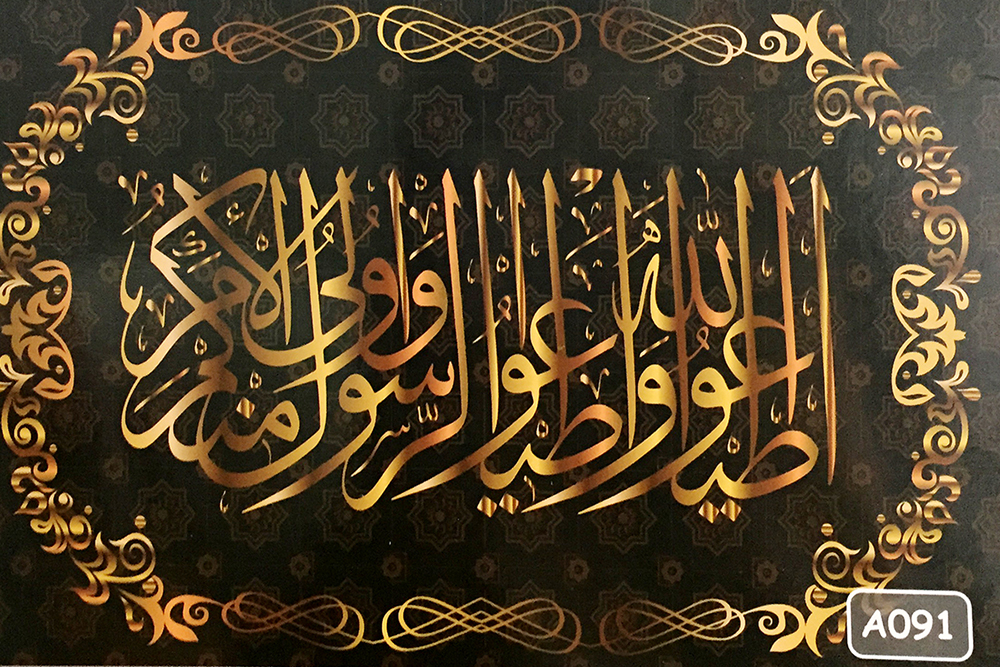 اطيعوا الله واطيعوا الرسول واولى الامر منكم
A091